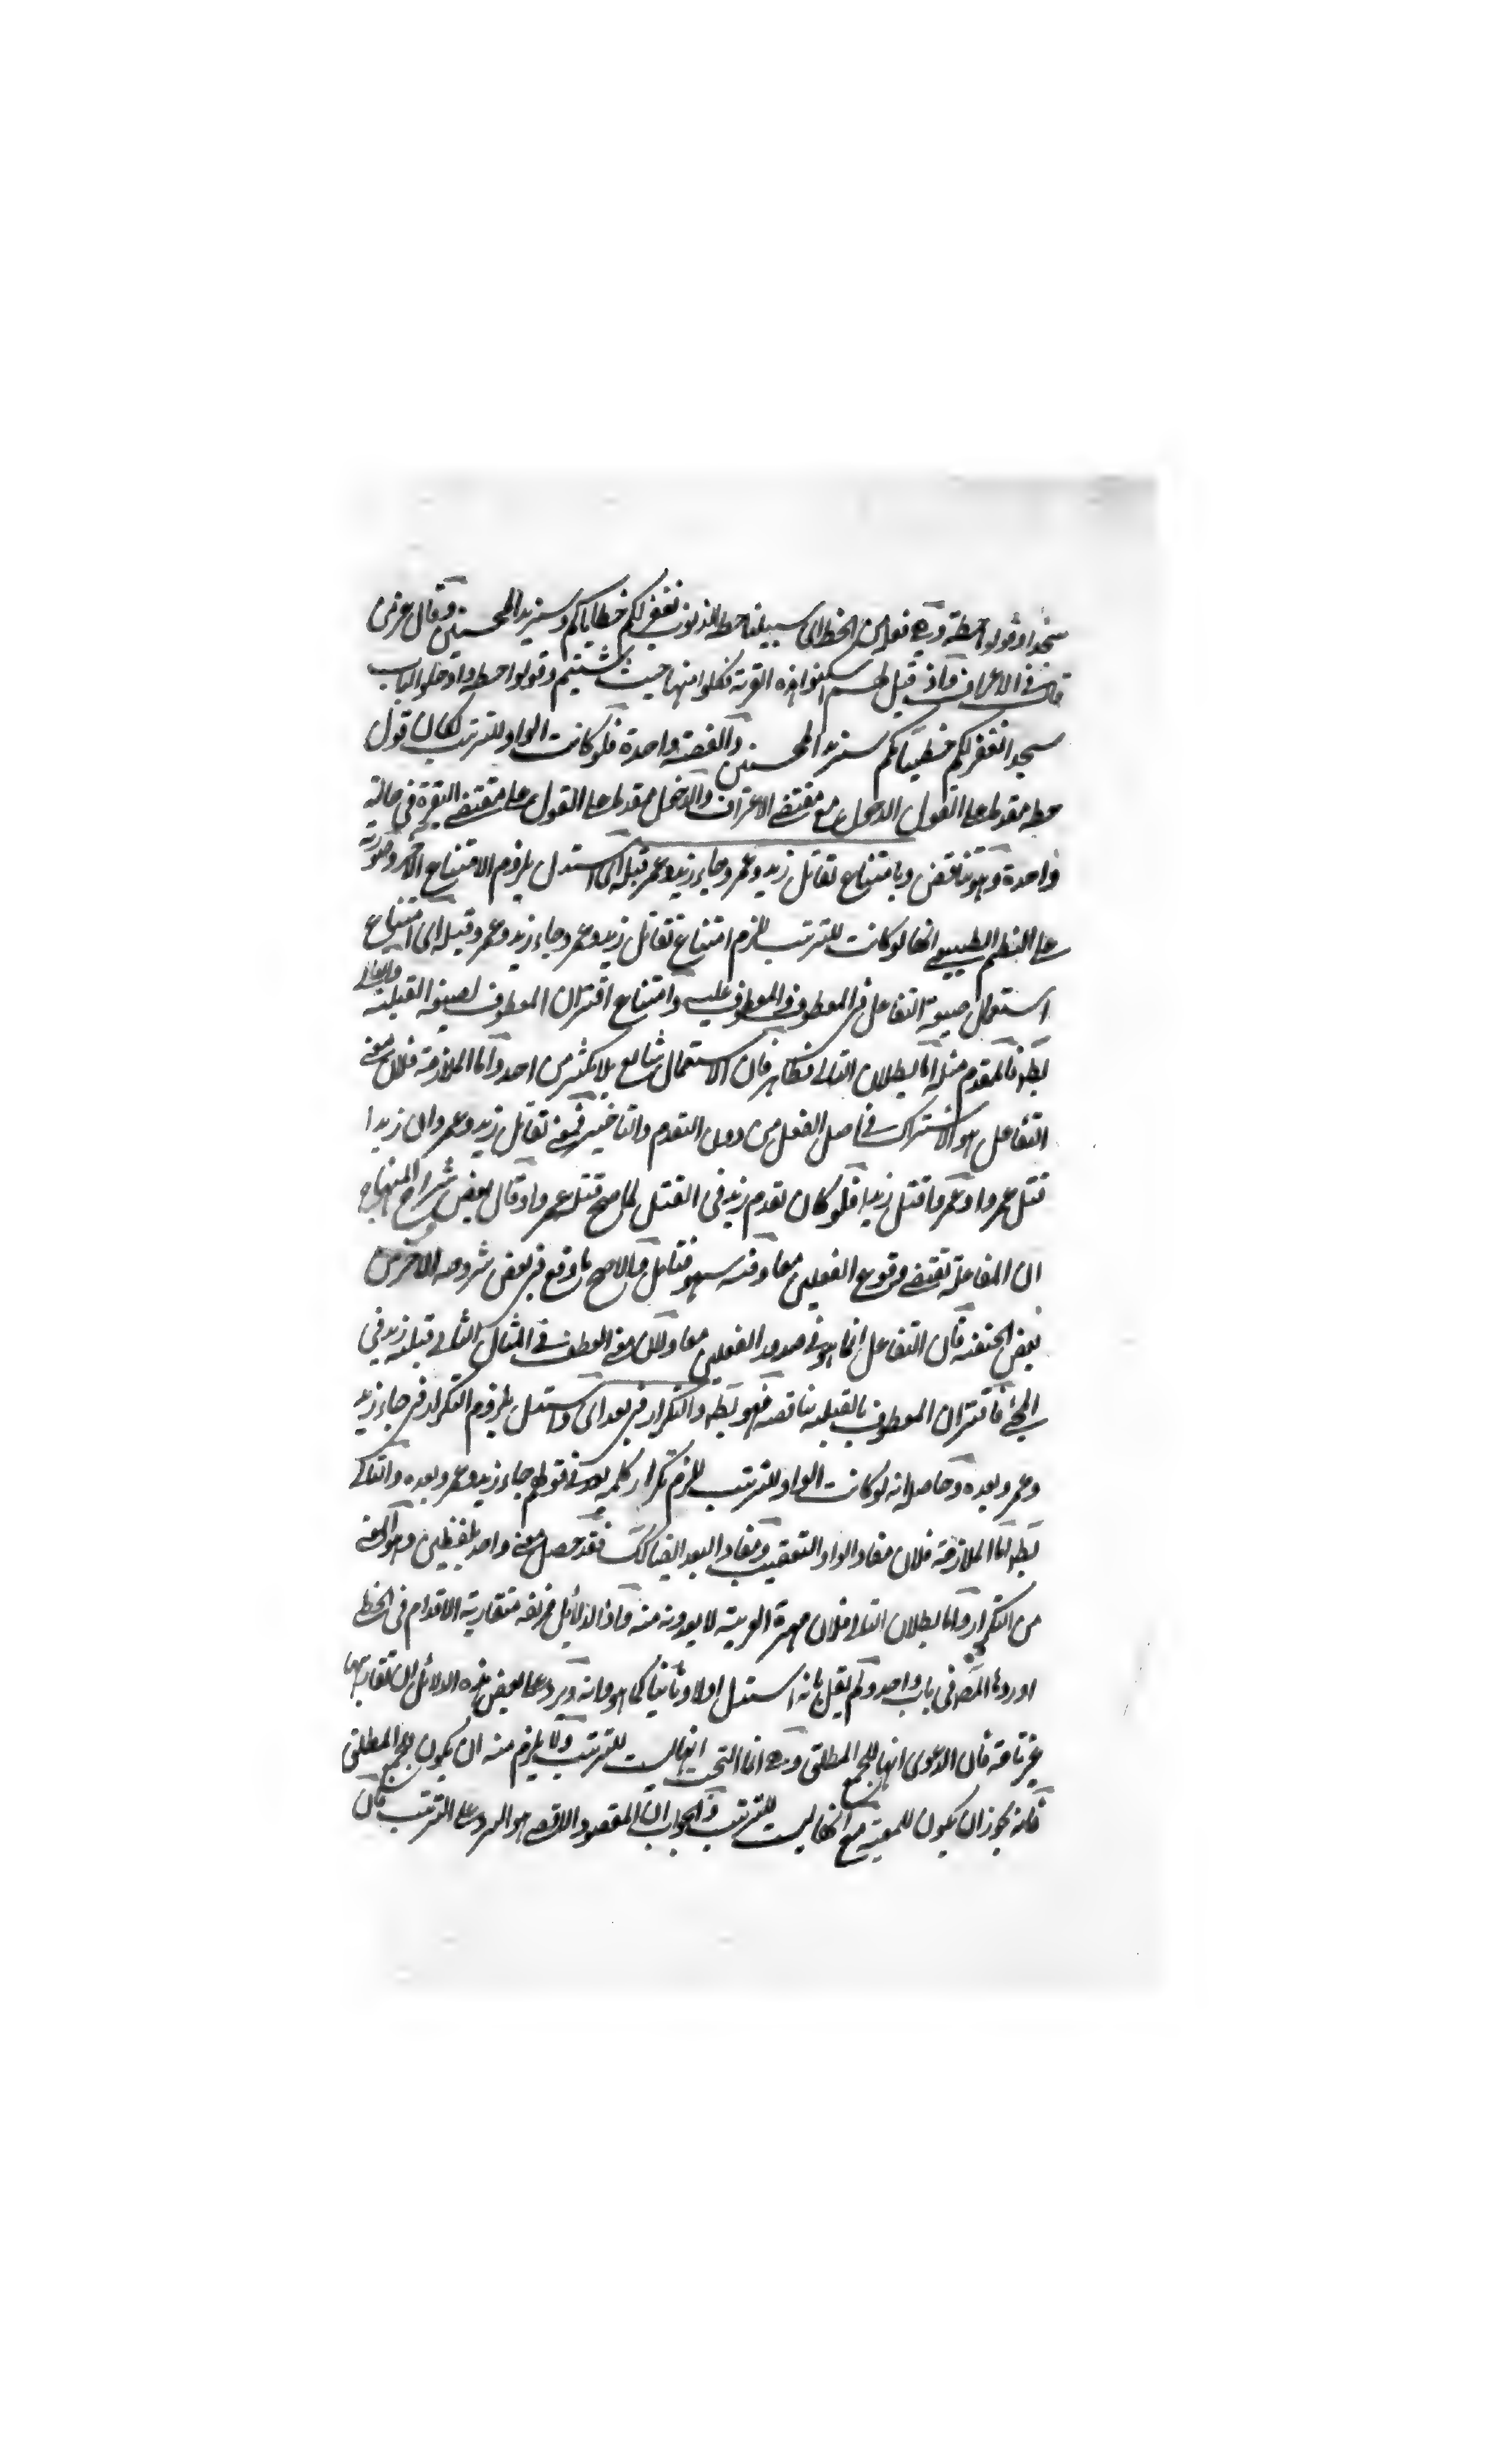 سجدا وقولوا حطة وهي فعلة من الحط اي سبيلنا حط الذنوب نغفر لكم خطاياكم وسنزيد المحسنين وقال عز من
قال في الاعراف واذ قيل لهم اسكنوا هذه القرية فكلوا منها حيث شئتم وقولوا حطة وادخلوا الباب
سجدا نغفر لكم خطيئاتكم سنزيد المحسنين والقصة واحدة فلو كانت الواو للترتيب لكان قول
حطة مقدما على الدخول مع مقتضى الاعراف والدخول مقدما على القول على مقتضى البقرة في حالة
واحدة وهو تناقض وبامتناع تقاتل زيد وعمر وجاء زيد وعمر قبله اي استدل بلزوم الامتناع
على النظم الطبيعي انها لو كانت للترتيب للزم امتناع تقاتل زيد وعمر وجاء زيد وعمر وقبله اي امتناع
استعمال صيغة التفاعل في المعطوف والمعطوف عليه وامتناع اقتران المعطوف لصيغة القبلية والتالي
بط فالمقدم مثله اما بطلان التالي فظاهر فان الاستعمال شايع بلا نكير من احد واما الملازمة فلان معنى
التفاعل هو الاشتراك في اصل الفعل من دون التقدم والتاخير فمعنى تقاتل زيد وعمر وان زيدا
قتل عمروا وعمروا قتل زيدا فلو كان تقدم زيد في القتل لما صح قتل عمروا وقال بعض شراح المنهاج
ان المفاعلة تقتضي وقوع الفعلين معا وفيه سهو فتامل والاصح ما وقع في بعض شروحه الاخر من
بعض الحنفية فان التفاعل انما هو في صدور الفعلين معا ولان معنى العطف في المثال الثاني قبلية زيد في
المجئ فاقتران المعطوف بالقبلية يناقضه فهو بط والتكرار في بعد اي واستدل بلزوم التكرار في جاء زيد
وعمر وبعده وحاصله انه لو كانت الواو للترتيب للزم تكرار كلمة بعد في قولهم جاء زيد وعمر وبعده والتالي
بط اما الملازمة فلان مفاد الواو التعقيب ومفاد البعد ايضا كك فقد حصل معنى واحد بلفظين وهو المعنى
من التكرار واما بطلان التالي فلان مهرة العربية لا يعدونه منه واذ الدلائل مزيفة متقاربة الاقدام في الخطا
اوردها المص في باب واحد ولم يقل بانه استدل اولا وثانيا كما هو دابه ويرد على بعض هذه الدلائل ان تقاربها
غير تامة فان الدعوى انها للجمع المطلق وهي انما انتجت انها ليست للترتيب ولا يلزم منه ان يكون للجمع المطلق
فانه يجوز ان يكون للمعية مع انها ليست للترتيب والجواب ان المقصود الاقصى هو الرد على الترتيب فان